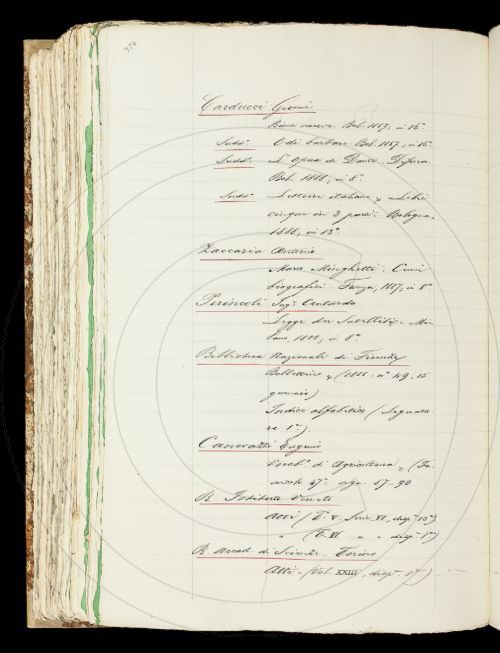 254
Carducci Giosuè
Rime nuove. Bol. 1887, in 16°
Sudd°. Odi barbare. Bol. 1887, in 16°
Sudd°. L'opera di Dante.
Bol. 1888, in 8°
Sudd°. Letture italiane. Libri
cinque in 3 parti. Bologna,
1888, in 12°.
Zaccaria Antonio
Marco Minghetti. Cenni
biografici. Faenza, 1887, in 8°
Ing. Contardo
Legge dei Satelliti. Mi-
lano, 1888, in 8°.
Biblioteca Nazionale di Firenze
Bollettino (1888. n° 49, 15
gennaio)
Indice alfabetico (Segnatu-
re 1ª).
Canevazzi Eugenio
Vocab° di Agricoltura, (Fa-
scicolo 47°: pag. 57-90
R. Istituto Veneto
Atti (T. V. Serie VI, disp. 10ª)
" (T. VI " " disp. 1ª)
R. Accad. di Scienze. Torino
Atti. (Vol. XXIII, disp.